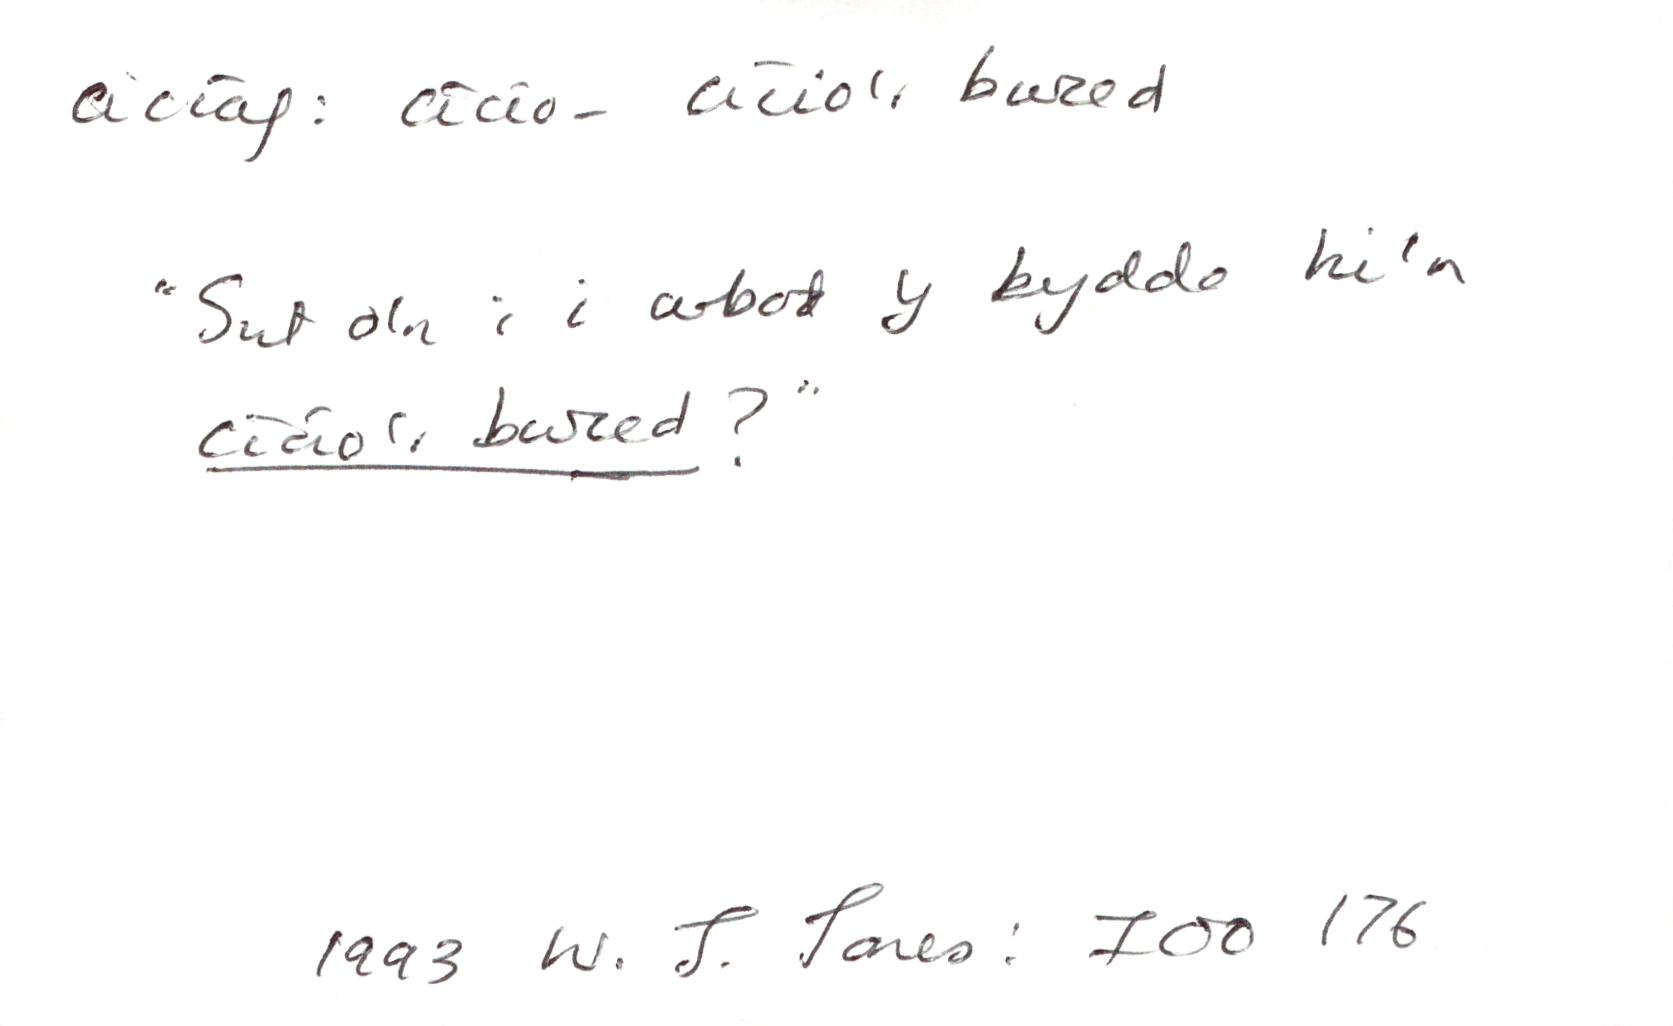 ciciaf: cicio – cicio'r bwced
"Sut o'n i i wbod y bydde hi'n
cicio'r bwced?"
1993 W. J. Jones: IOO 176